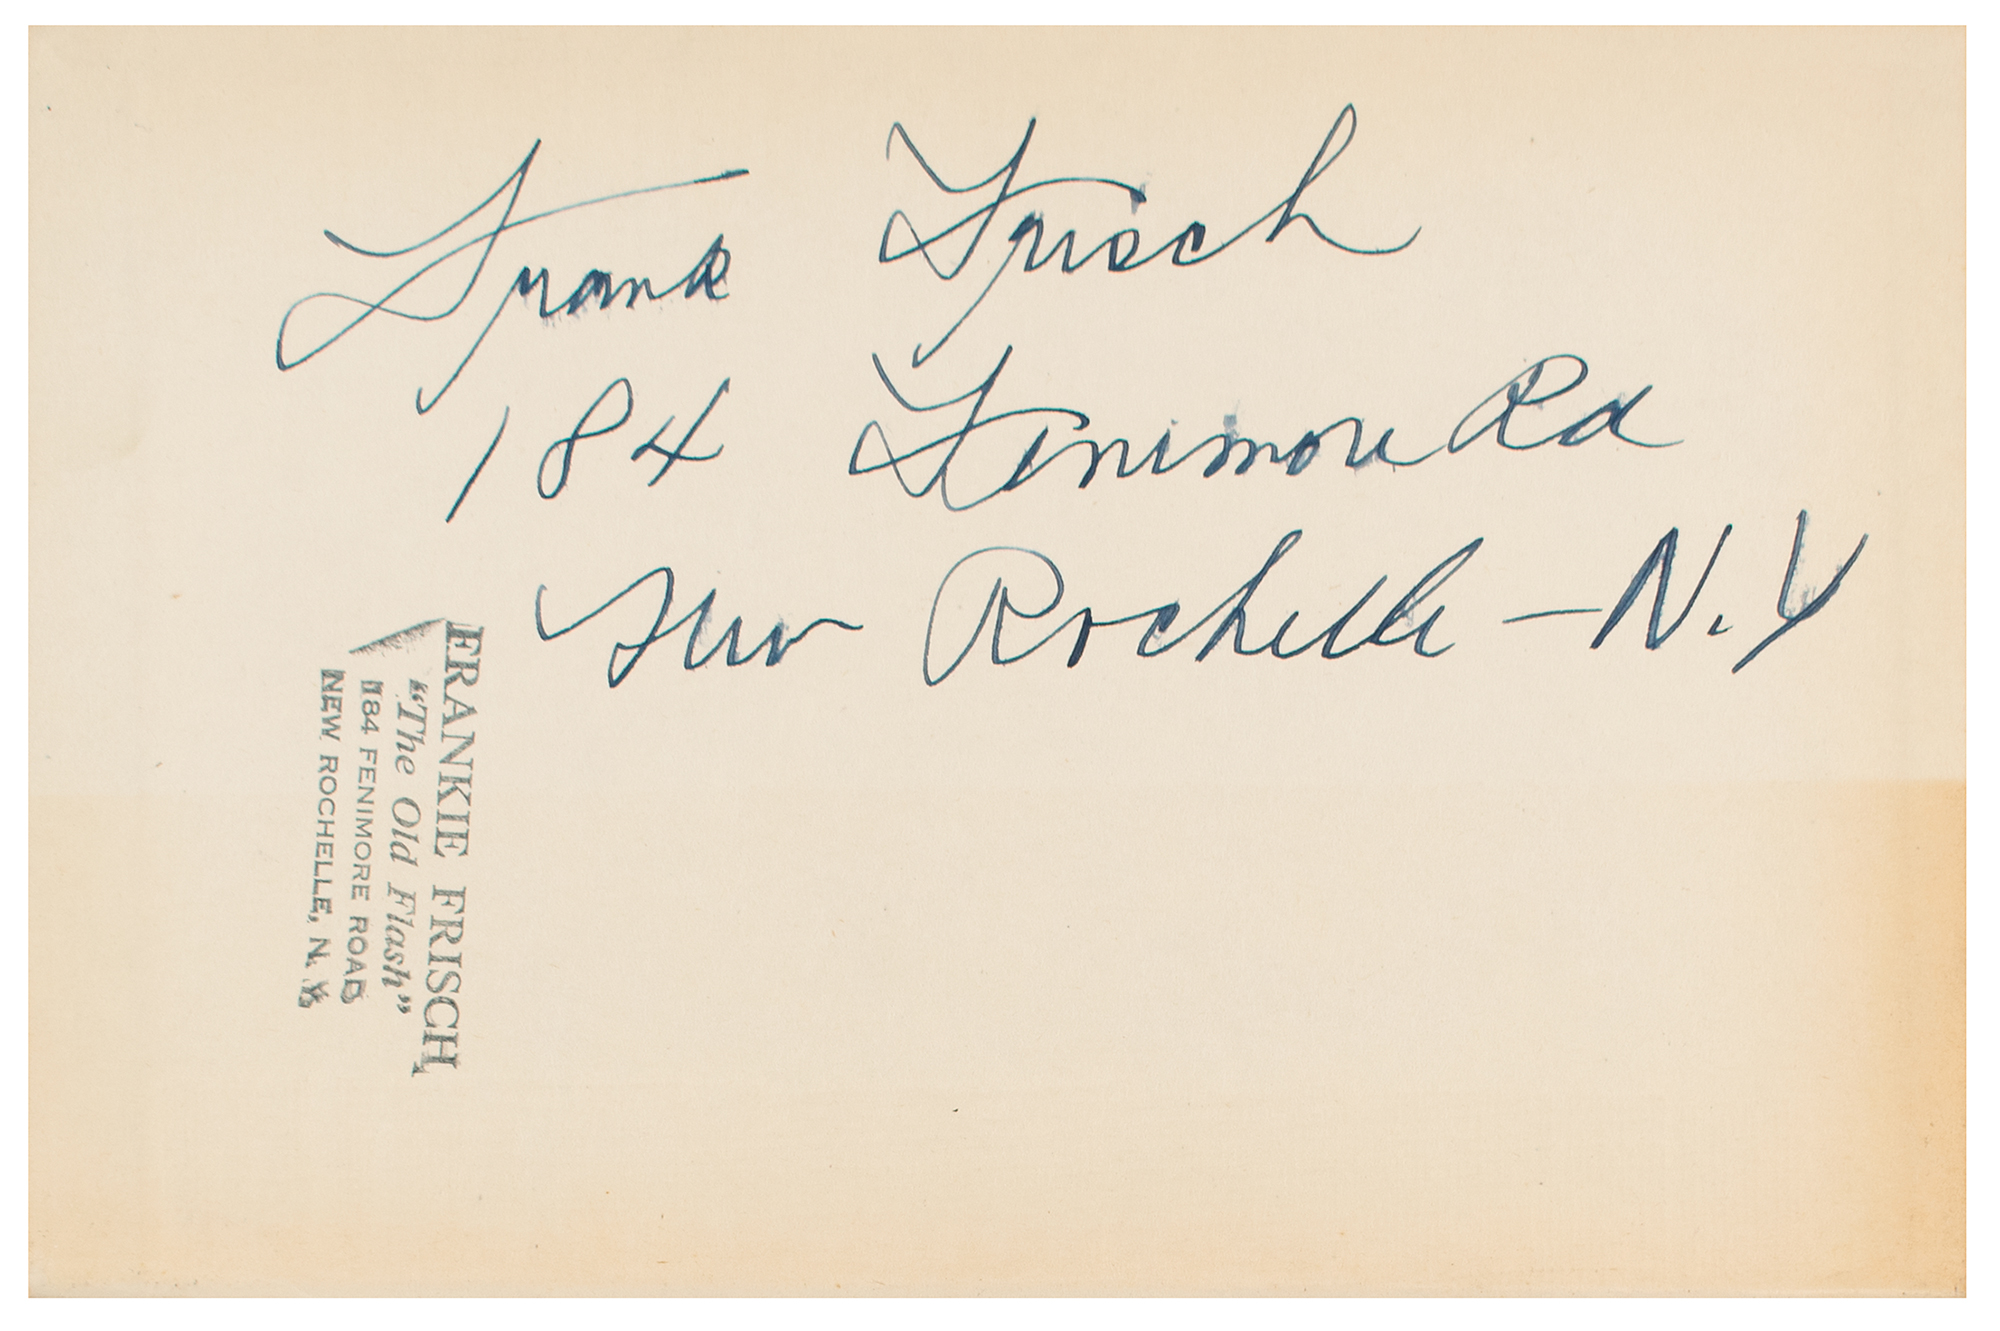 Frank Frisch
184 Fenimore Rd
New Rochelle - N.Y
FRANKIE FRISCH
"The Old Flash"
184 FENIMORE ROAD
NEW ROCHELLE, N. Y.